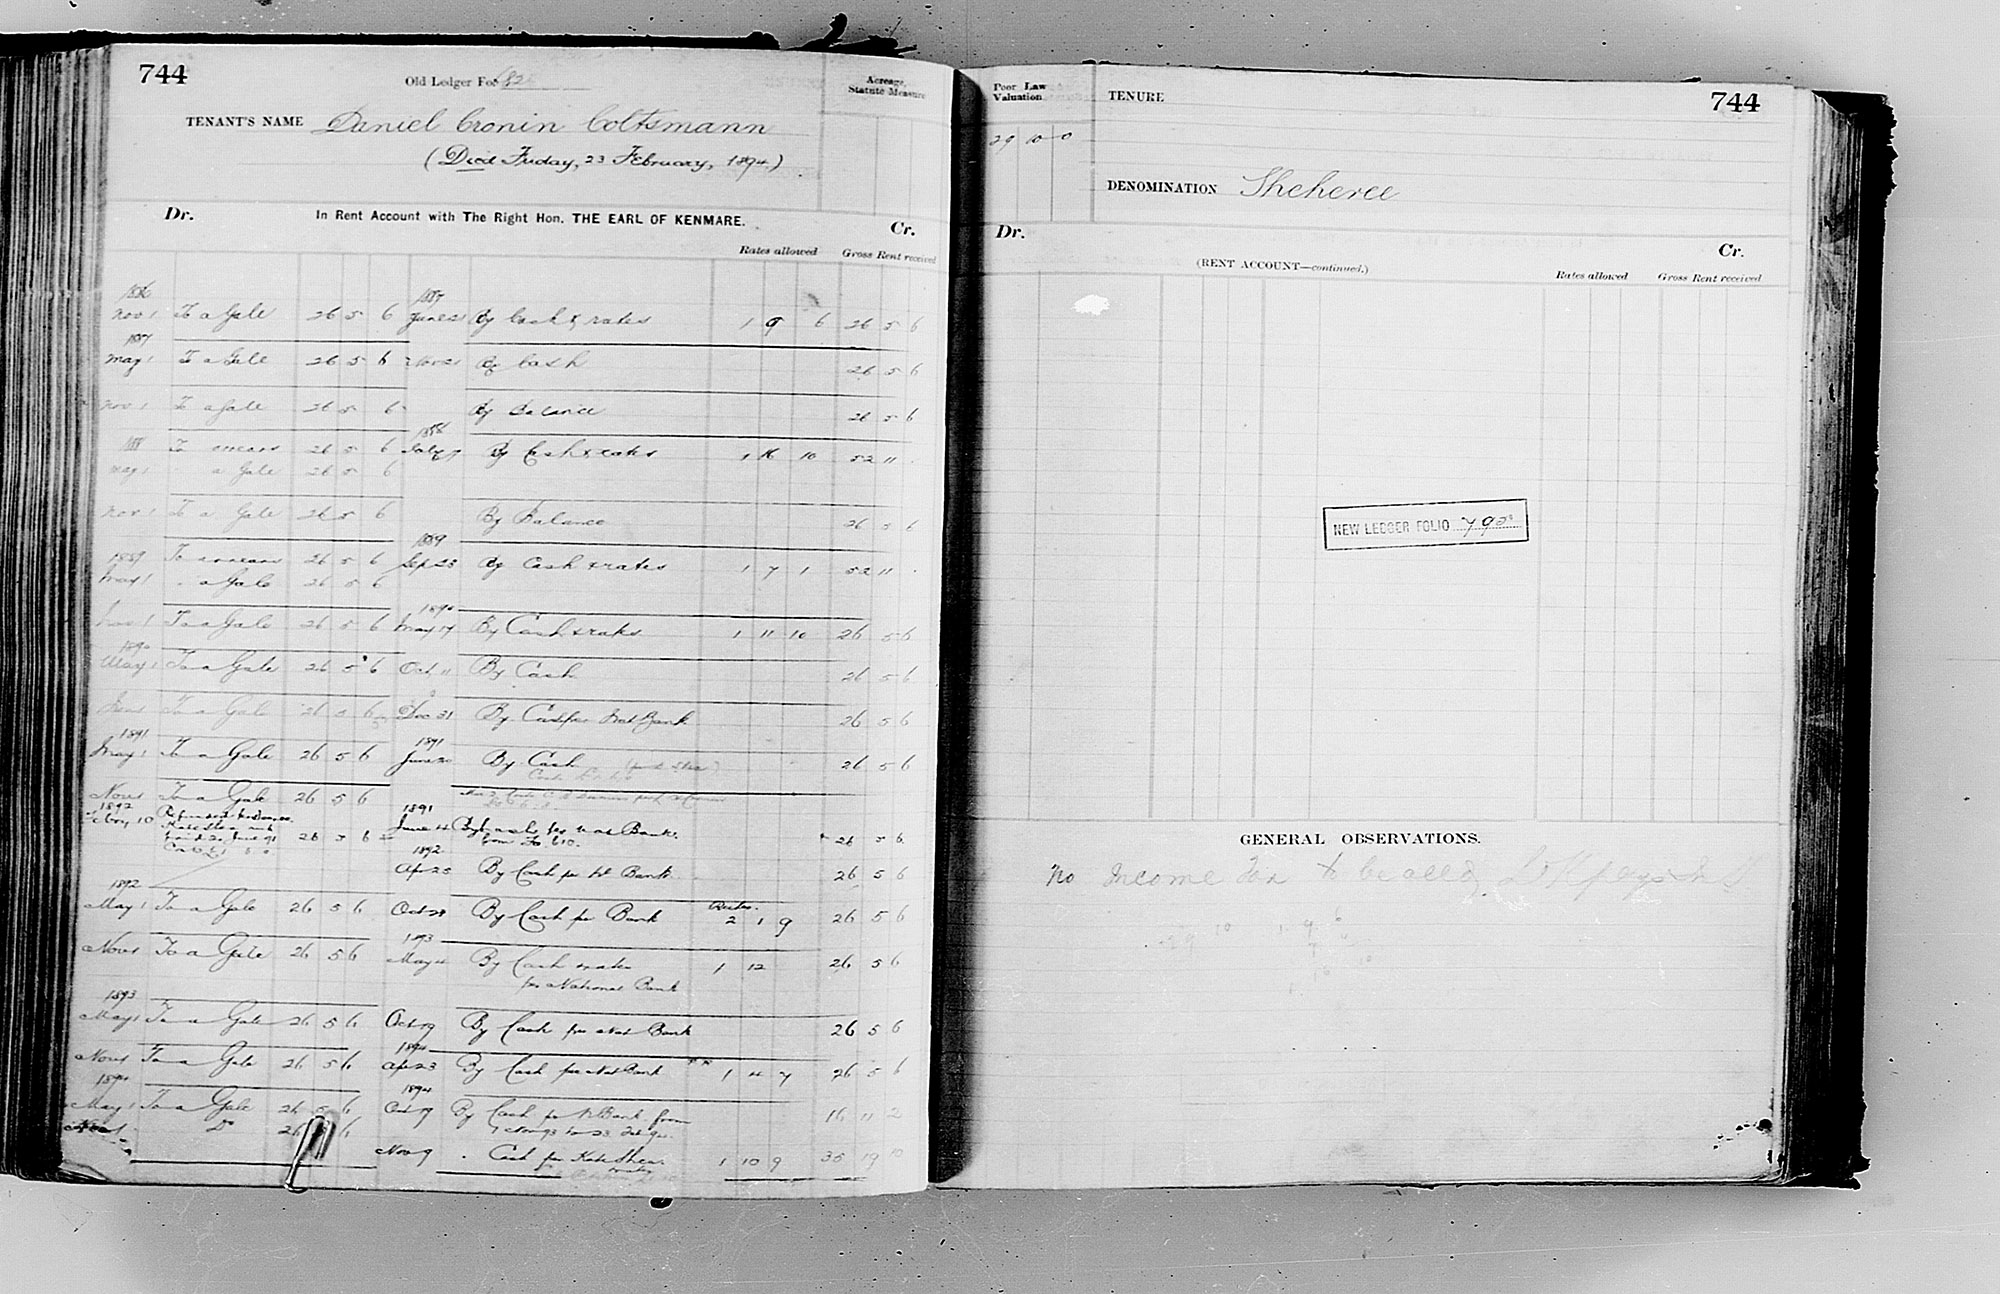 744
Old Ledger Fol 82
Acreage, Statute Measure
TENANT'S NAME Daniel Cronin Coltsmann
(Died Friday, 23 February, 1894)
Dr. In Rent Account with The Right Hon. THE EARL OF KENMARE. Cr.
Rates allowed Gross Rent received
1886 1887
Nov 1 To a Gale 26 5 6 June 21 By Cash & rates 1 9 6 26 5 6
1887
May 1 To a Gale 26 5 6 By Cash 26 5 6
Nov 1 To a Gale 26 5 6 By Balance 26 5 6
1888
1888 To arrears 26 5 6 July 7 By Cash & rates 1 16 10 52 11
May 1 a Gale 26 5 6
Nov 1 To a Gale 26 5 6 By Balance 26 5 6
1889
1889 To arrears 26 5 6 Sep 23 By Cash & rates 1 7 1 52 11
May 1 a Gale 26 5 6
1890
Nov 1 To a Gale 26 5 6 May 17 By Cash & rates 1 11 10 26 5 6
1890
May 1 To a Gale 26 5 6 Oct 11 By Cash 26 5 6
To a Gale 26 5 6 Dec 31 By Cash per Nat Bank 26 5 6
1891 1891
May 1 To a Gale 26 5 6 June 20 By Cash 26 5 6
Nov 1 To a Gale 26 5 6
1892 1891
Feby 10 26 5 6 June By Cash per Nat Bank 26 5 6
from Fo. 610.
1892
Apr 25 By Cash per N Bank 26 5 6
1892 Rates.
May 1 To a Gale 26 5 6 Oct 29 By Cash per Bank 2 1 9 26 5 6
1893
Nov 1 To a Gale 26 5 6 May By Cash & rates 1 12 26 5 6
per National Bank
1893
May 1 To a Gale 26 5 6 Oct 19 By Cash per Nat Bank 26 5 6
1894
Nov 1 To a Gale 26 5 6 Apr 23 By Cash per Nat Bank 1 4 7 26 5 6
1894 1894
May 1 To a Gale 26 5 6 Oct 19 By Cash per N Bank from 16 11 2
Nov 1 Do 26 5 6 1 Nov 93 to 23 Feb 94.
Nov 9 Cash per Kate Shea 1 10 9 35 19 10
Poor Law Valuation
29 10 0
TENURE
744
DENOMINATION Sheheree
Dr. Cr.
(RENT ACCOUNT—continued.)
Rates allowed Gross Rent received
NEW LEDGER FOLIO 790
GENERAL OBSERVATIONS.
No Income Tax to be alld